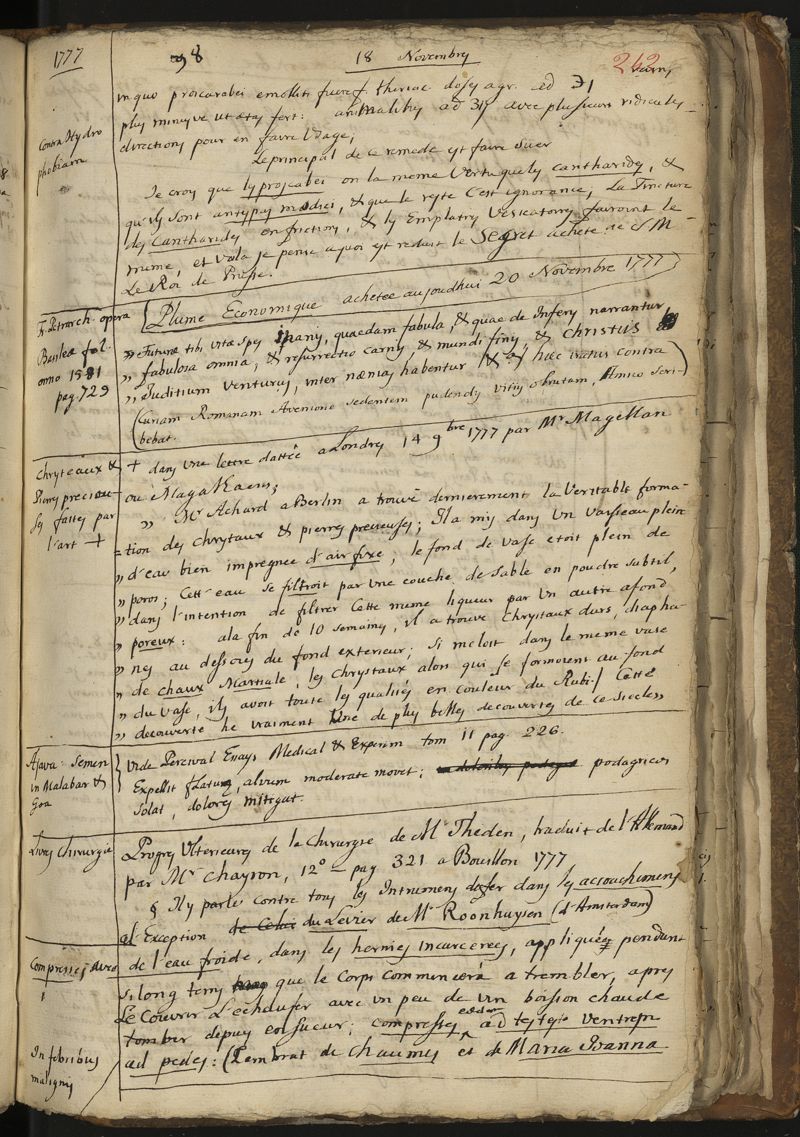 1777
98
18 Novembry
242
in quo proscarabei emolliti fuere f. theriac dosis a gr. ad Ʒ1
plus minusve ut ætas fert: animalibus ad Ʒij avec plusieurs ridicules
directions pour en faire l'usage,
Le principal de ce remede est faire suer
Contra Hydro
phobiam
Je croy que les proscabei on la meme vertu que les cantharides, &
qu'ils sont antypsy medici, & que le reste c'est ignorance, La Tincture
des Cantharides en friction, & les Emplatres Vesicatoires fairoint le
meme, et voila je pense a quoi est reduit le Segret acheté de S M
Le Roi de Prusse.
Plume Economique achetée aujourdhui 20 Novembre 1777
Fr. Petrarch. opera
Basileæ fol.
anno 1581
pag. 729
„ Futuræ tibi vitæ spes inanis, quædam fabula, & quæ de Inferis narrantur,
„ fabulosa omnia, & resurrectio carnis, & mundi finis, & Christus
„ Juditium venturus, inter nænias habentur (& hæc iratus contra
(Curiam Romanam Avenione sedentem pudendis vitiis obrutam, Amico scri-
bebat.
Chrystaux &
Pierres precieu-
ses faites par
l'art +
+ dans une lettre dattée a Londres 14 9bre 1777 par Mr Magellan
ou Magalhaens,
„ Mr Achard a Berlin a trouvé dernierement la Veritable forma-
=tion des Chrytaux & pierres pretieuses; Il a mis dans un Vaisseau plein
„ d'eau bien impregnée d'air fixe; le fond de vase etoit plein de
„ poros; Cett'eau se filtroit par une couche de Sable en poudre subtil,
„ dans l'intention de filtrer cette meme liqueur par un autre afond
„ poreux: a la fin de 10 semaines, il a trouvé Chrystaux durs, diapha-
„ nes au dessous du fond exterieur; Si meloit dans le meme vase
„ de chaux Martiale, les Chrystaux alon qui se formoient au fond
„ du Vase, ils avoit toute les qualités en couleur du Rubi./ Cette
„ decouverte he vraiment Une de plus belles decouvertes de ce siecle »
Ajava: Semen
in Malabar &
Goa
Vide Percival Essays Medical & Experim tom 11 pag 226.
Expellit flatus, alvum moderate movet; podagricos
Solat, dolores mitigat.
Livres Chirurgie
Progres Ulterieures de la Chirurgie de Mr Theden, traduit de l'Allemand
par Mr Chayron, 12° — pag 321 a Bouillon 1777
§ Il y parle contre tous les Intrumens de fer dans les acouchimens
al'Exception de Celui du Levier de Mr Roonhuysen (d'Amsterdam)
Compresses avec
de l'eau froide, dans les hernies incarcerées, appliquées pendant
si long tems que le Corps commencera a trembler, apres
Le Couvrir L'echaufer avec un peu de vin boisson chaude
tomber depuis en sueur; compresses eædem ad testes ventrem
ad pedes: (Rembrat de Chaumes et de Maria Ivanna
In febribus
malignis